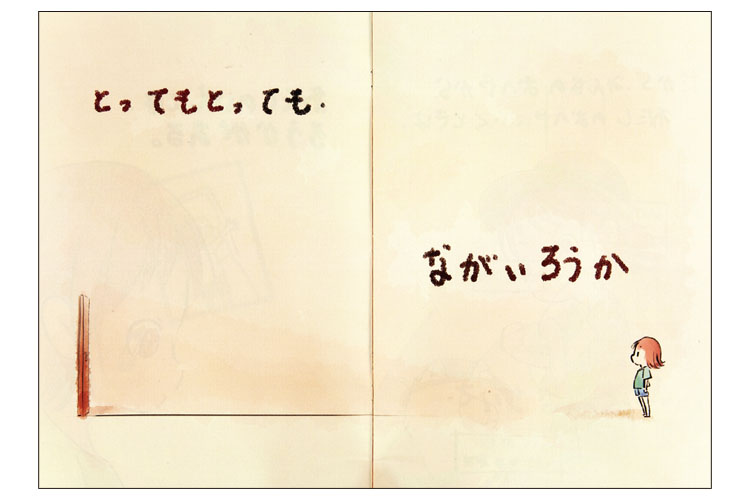 とってもとっても・
ながいろうか